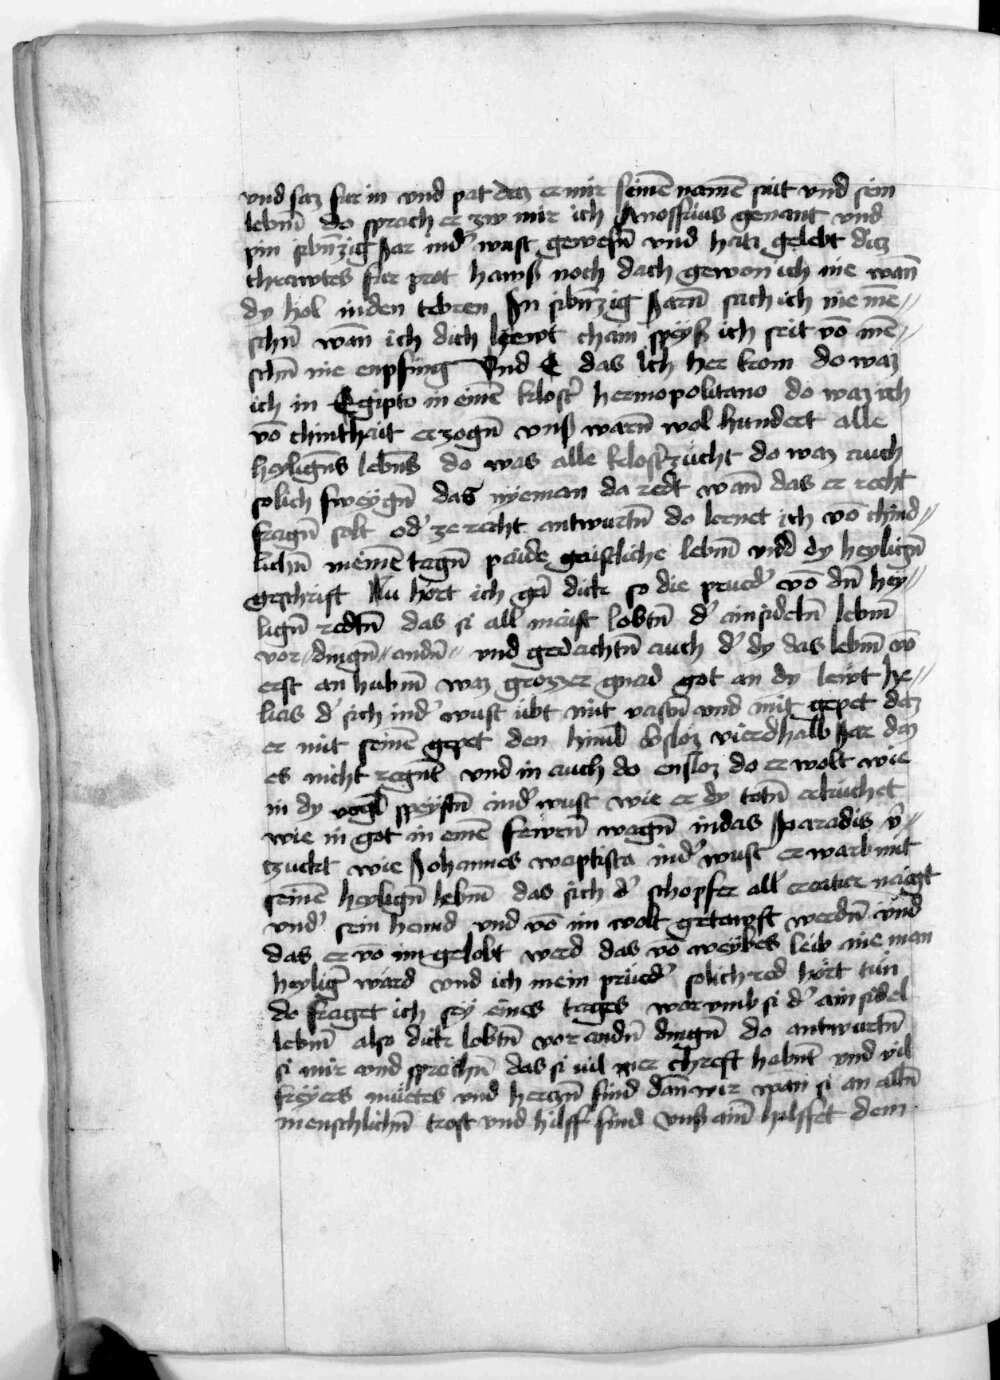 vnd saz fur in vnd pat daz er mir seinē namē sait vnd sein
lebm̄ do sprach er zw mir ich Anoffrius genant vnd
pin sibn̄zig Jar ind' wust gewesn̄ vnd han gelebt diz
chrawtes fur prot hainß noch dach gewon ich nie wan̄
dy hol inden tebren In sibn̄zig Jarn̄ sach ich nie mē〃
schn̄ wan̄ ich dich hewt chain speyß ich seit vō mē〃
schn̄ nie enpfing Vnd E das Ich her kom do waz
ich in Egipto in einē klost' hermopolitano do waz ich
vō chinthait erzogn̄ vnß warn̄ wol hundert alle
heylign̄s lebn̄s do was alle klost'zucht do waz auch
solich sweygn̄ das nyeman da redt wan̄ das er recht
fragn̄ solt od' ze recht antwurtn̄ do lernet ich vō chind〃
lichn̄ meinē tagn̄ paide gaistliche lebm̄ vnd dy heylign̄
geschrift Nu hort ich gā dick so die prued' vō dn̄ hey〃
lign̄ redtn̄ das si all maist lobtn̄ d' ainsideln̄ lebm̄
vor〃dingn̄〃andn̄〃 vnd gedachtn̄ auch d' dy das lebm̄ vō
erst an hubm̄ waz grozzer gnad got an dy leiwt he〃
lias d' sich ind' wust ubt mit vastn̄ vnd mit gepet daz
er mit seinē gepet den himl v'sloz vierdhalb Jar daz
es nicht regnt vnd in auch do ensloz do er wolt wie
in dy vogl speystn̄ ind' wust wie er dy totn̄ erkuchet
wie in got in einē fewrn̄ wagn̄ indas paradis v'〃
tzuckt wie Johannes waptista ind' wust erwarb mit
seinē heylign̄ lebm̄ das sich d' schopfer all' creatur naigt
vnd' sein hennd vnd vō im wolt getawft werdn̄ vnd
das er vō im gelobt werd das vō weybes leib nie man
heylig' ward vnd ich mein prued' solich red hort tun
do fraget ich sey eines tages warvmb si d' ainsidel
lebm̄ also dick lobtn̄ vor andn̄ dingn̄ do antwurtn̄
si mir vnd sprachn̄ das si vil mer chreft habnt vnd vil
freyers muetes vnd herczn̄ sind dan̄ wir wan si an alln̄
menschlichn̄ trost vnd hilff sind vnß ainē hilffet dem